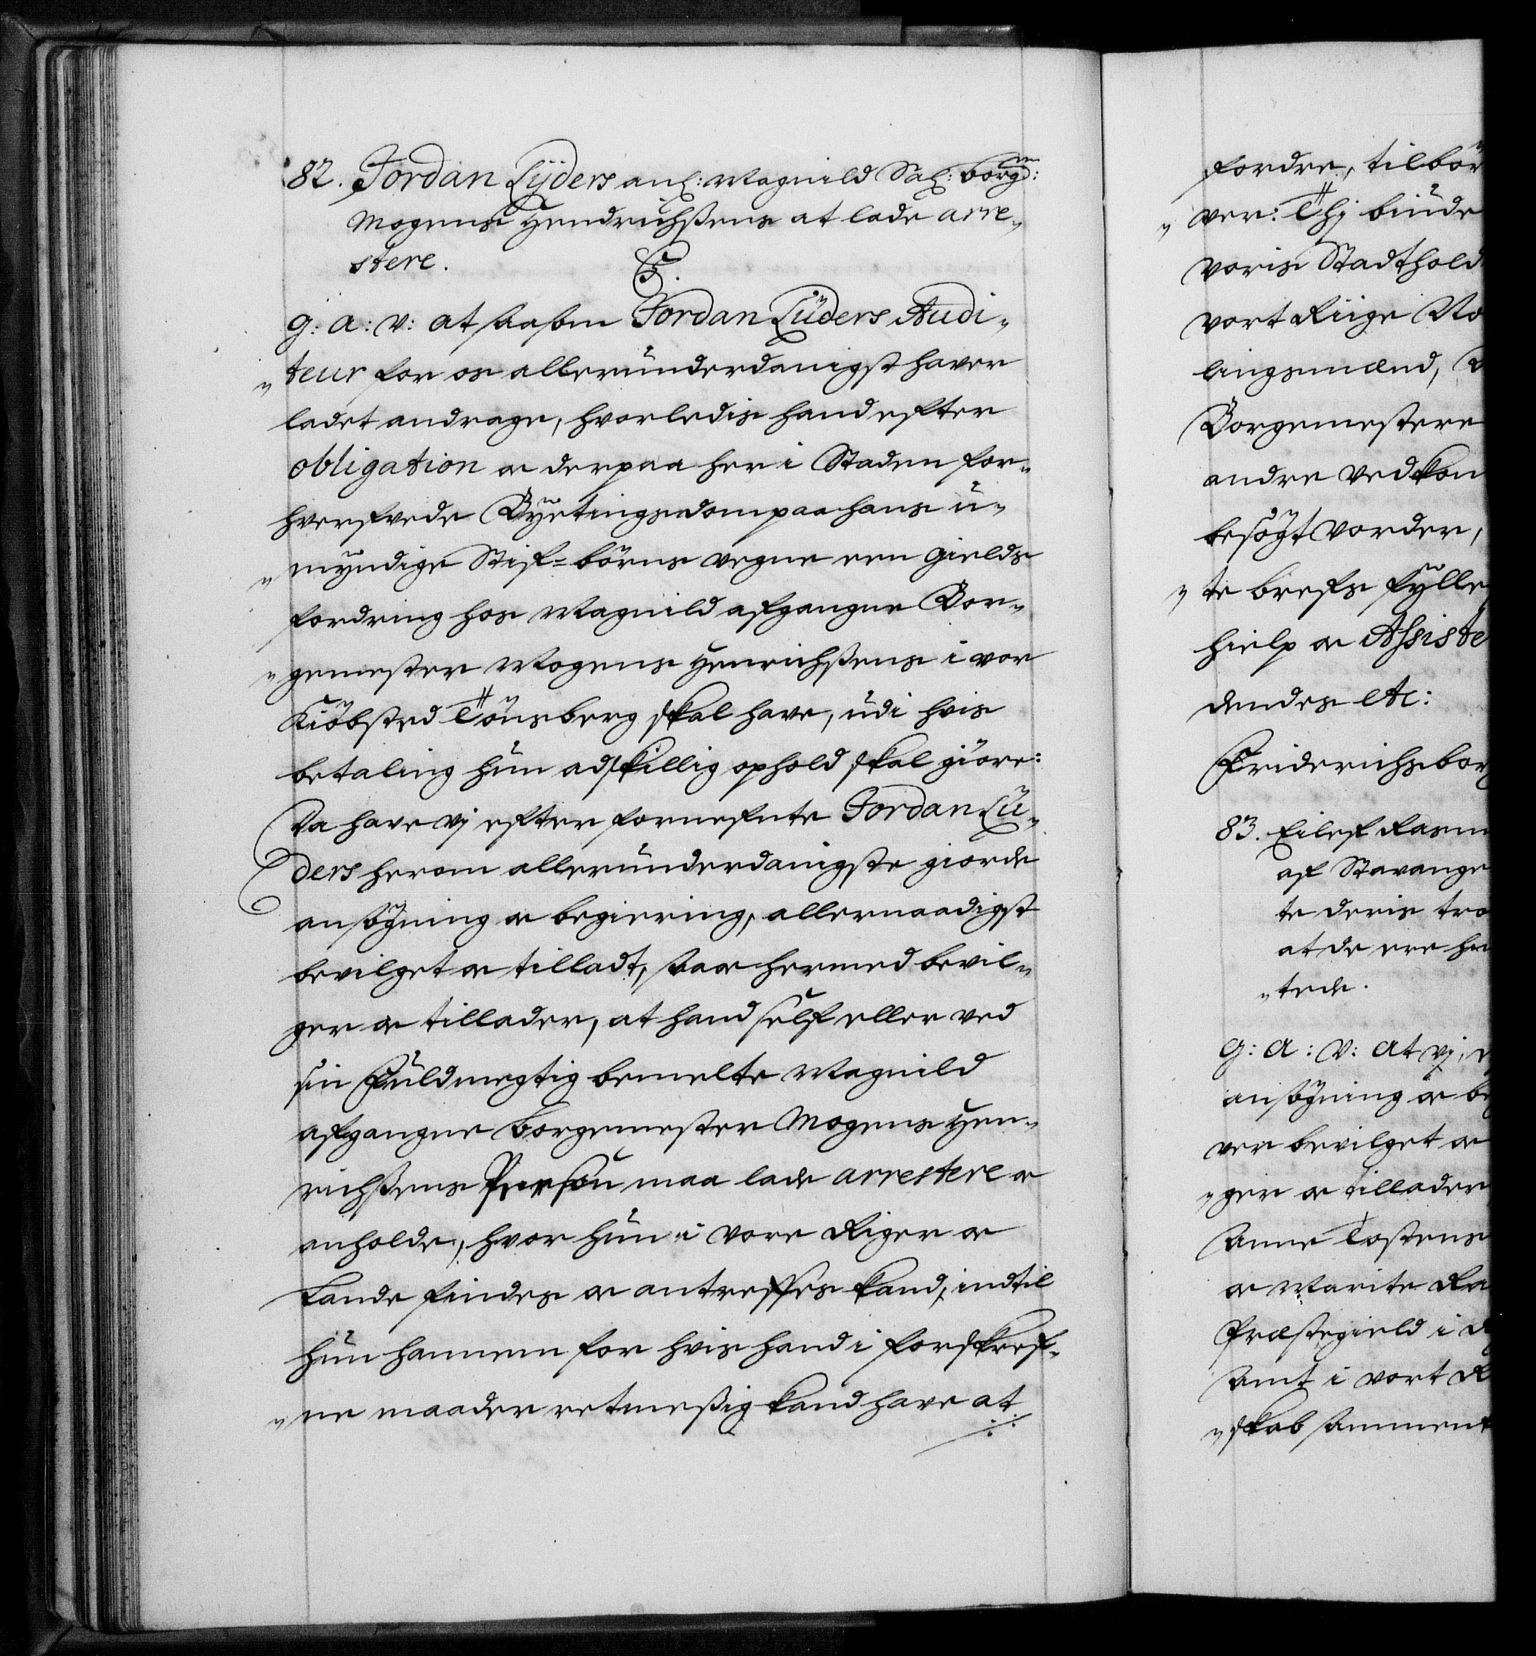 82. Jordan Lÿders anl: Magnild Sal: borgm:
Mogens Hendrichßens at lade arre-
stere.
C5.
G: A: V: at saasom Jordan Lüders Audi-
teur for os allerunderdanigst haver
ladet andrage, hvorledis hand efter
obligation og derpaa her i Staden for-
hverfvede Byetingsdom paa hans u-
myndige Stif-börns vegne een gields
fordring hos Magnild afgangne Bor-
gemester Mogens Henrichßens i vor
Kiöbsted Tönsberg skal have, udi hvis
betaling hun adskillig ophold skal giöre:
Da have vj efter fornefnte Jordan Lü-
ders herom allerunderdanigste giorde
ansögning og begiering, allernaadigst
bevilget og tilladt, saa og hermed bevil-
ger og tillader, at hand self eller ved
sin Fuldmegtig bemelte Magnild
afgangne Borgemester Mogens Hen-
richßens Person maa lade arrestere og
anholde, hvor hun i vore Riger og
Lande findes og antreffes kand, indtil
hun hannem for hvis hand i forskref-
ne maader retmeßig kand have at
fordre, tilbör
ver: Thj biude
voris Stadthold
vort Riige No
lingsmænd,
Borgemestere
andre vedkom
besögt vorder,
te brefs fylle
hielp og Assiste
dendes etc:
Friderichsborg
83. Eilef Rasm
af Stavange
te deris tro
at de ere
tede.
G: A: V: At vj,
ansögning og be
ver bevilget og
ger og tillader
Anne Tostens
og Marite Ra
Præstegield i
Amt i vort R
skab sammen